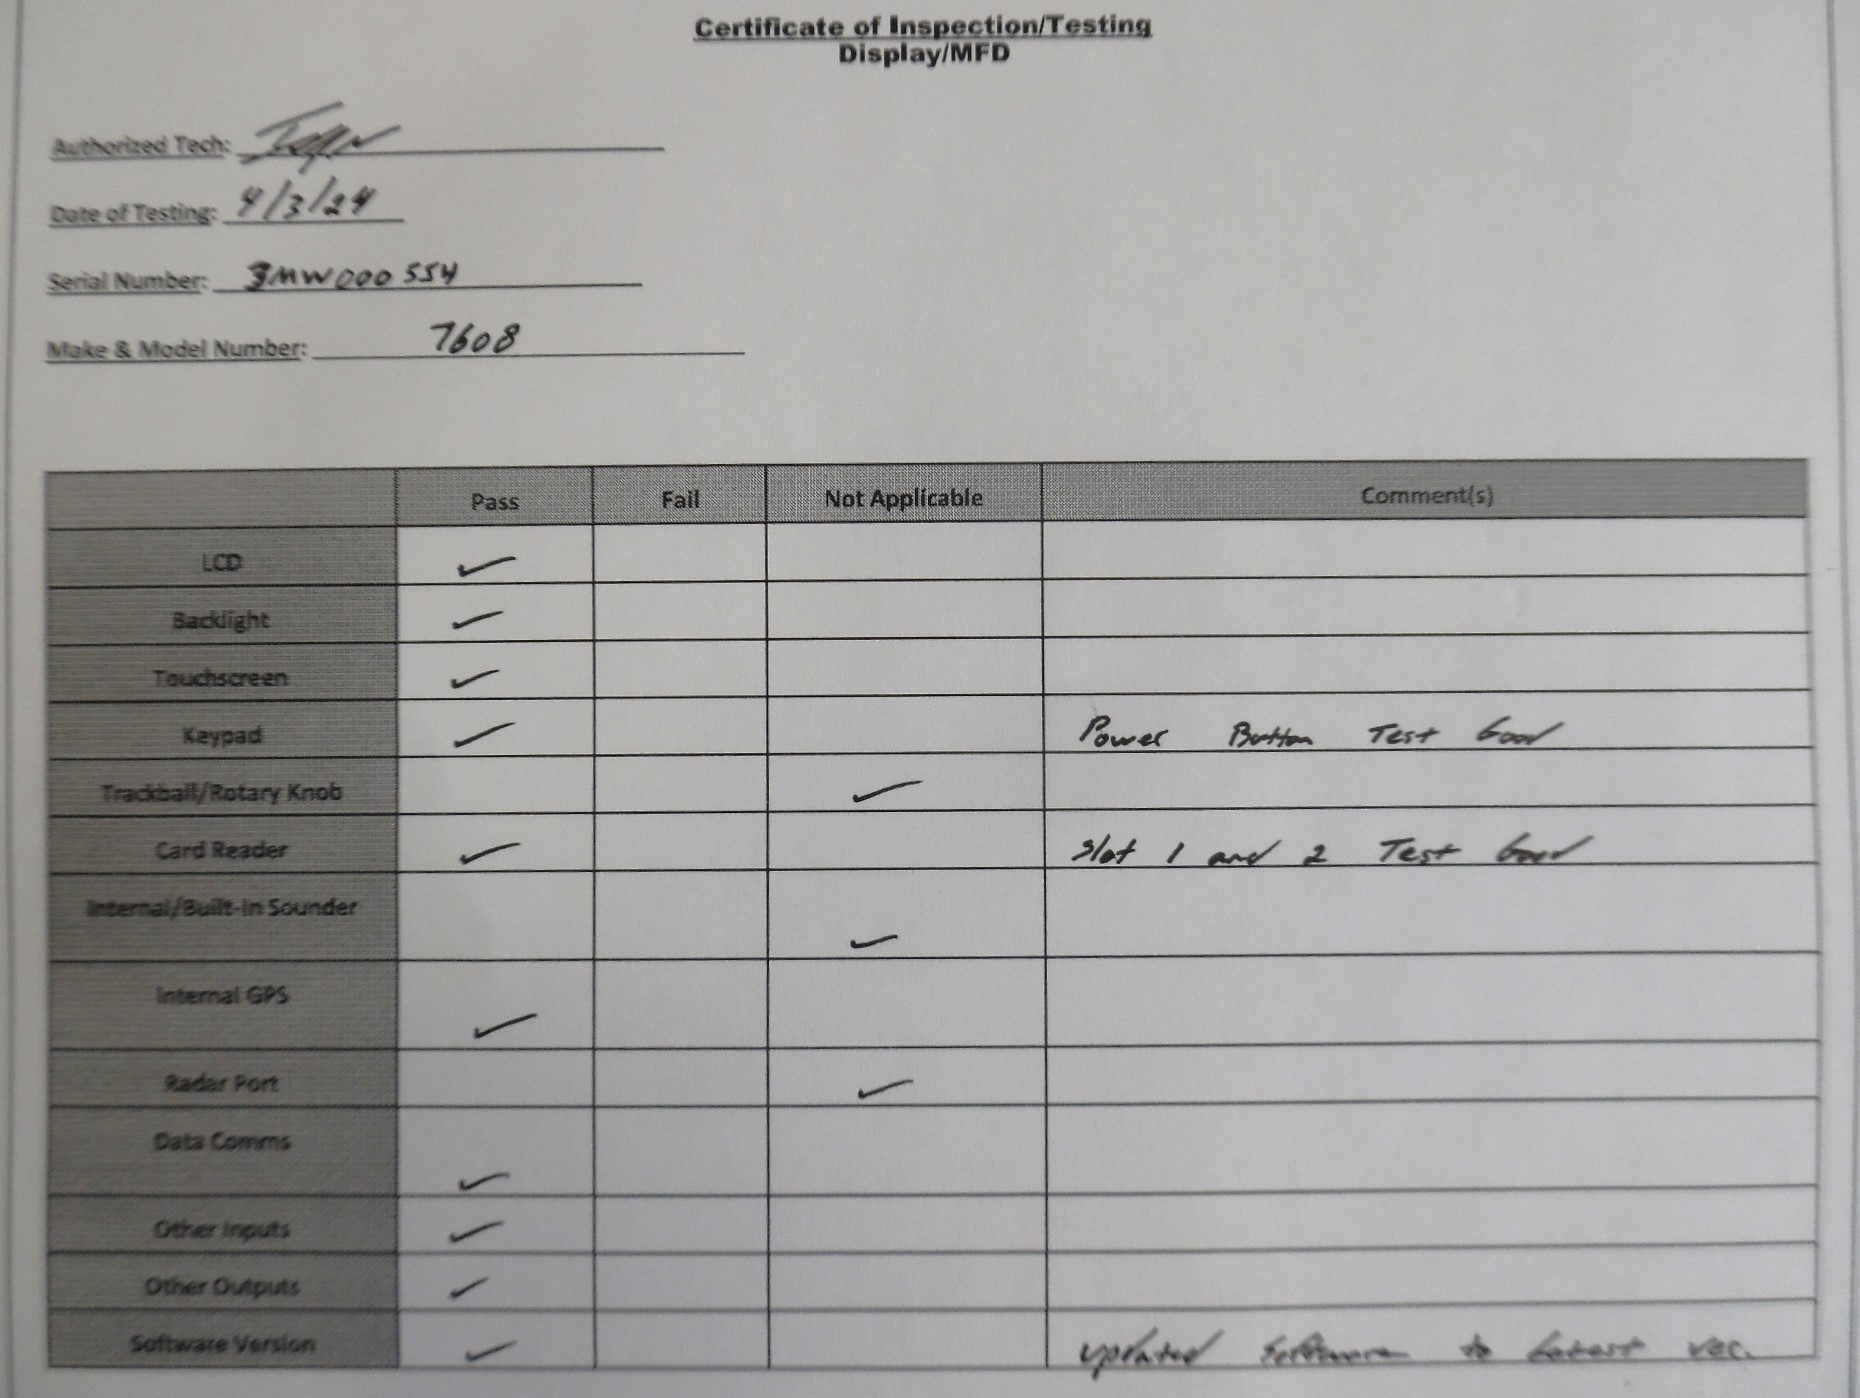 Certificate of Inspection/Testing
Display/MFD
Authorized Tech:
Date of Testing: 4/3/24
Serial Number: 3MW000554
Make & Model Number: 7608
Pass Fail Not Applicable Comment(s)
LCD ✓
Backlight ✓
Touchscreen ✓
Keypad ✓ Power Button Test Good
Trackball/Rotary Knob ✓
Card Reader ✓ Slot 1 and 2 Test Good
Internal/Built-In Sounder ✓
Internal GPS ✓
Radar Port ✓
Data Comms ✓
Other Inputs ✓
Other Outputs ✓
Software Version ✓ updated Software to Latest ver.